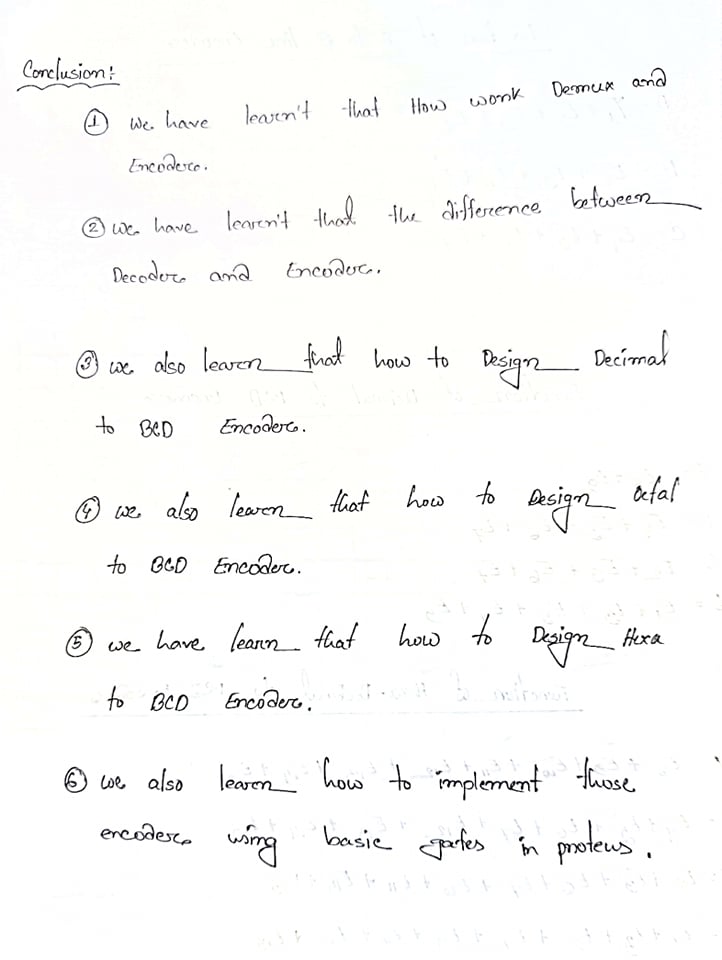 Conclusion:
① We have learn't that How work Demux and
Encoder.
② we have learn't that the difference between
Decoder and Encoder.
③ we also learn that how to Design Decimal
to BCD Encoder.
④ we also learn that how to Design Octal
to BCD Encoder.
⑤ we have learn that how to Design Hexa
to BCD Encoder.
⑥ we also learn how to implement those
encoder using basic gates in proteus.